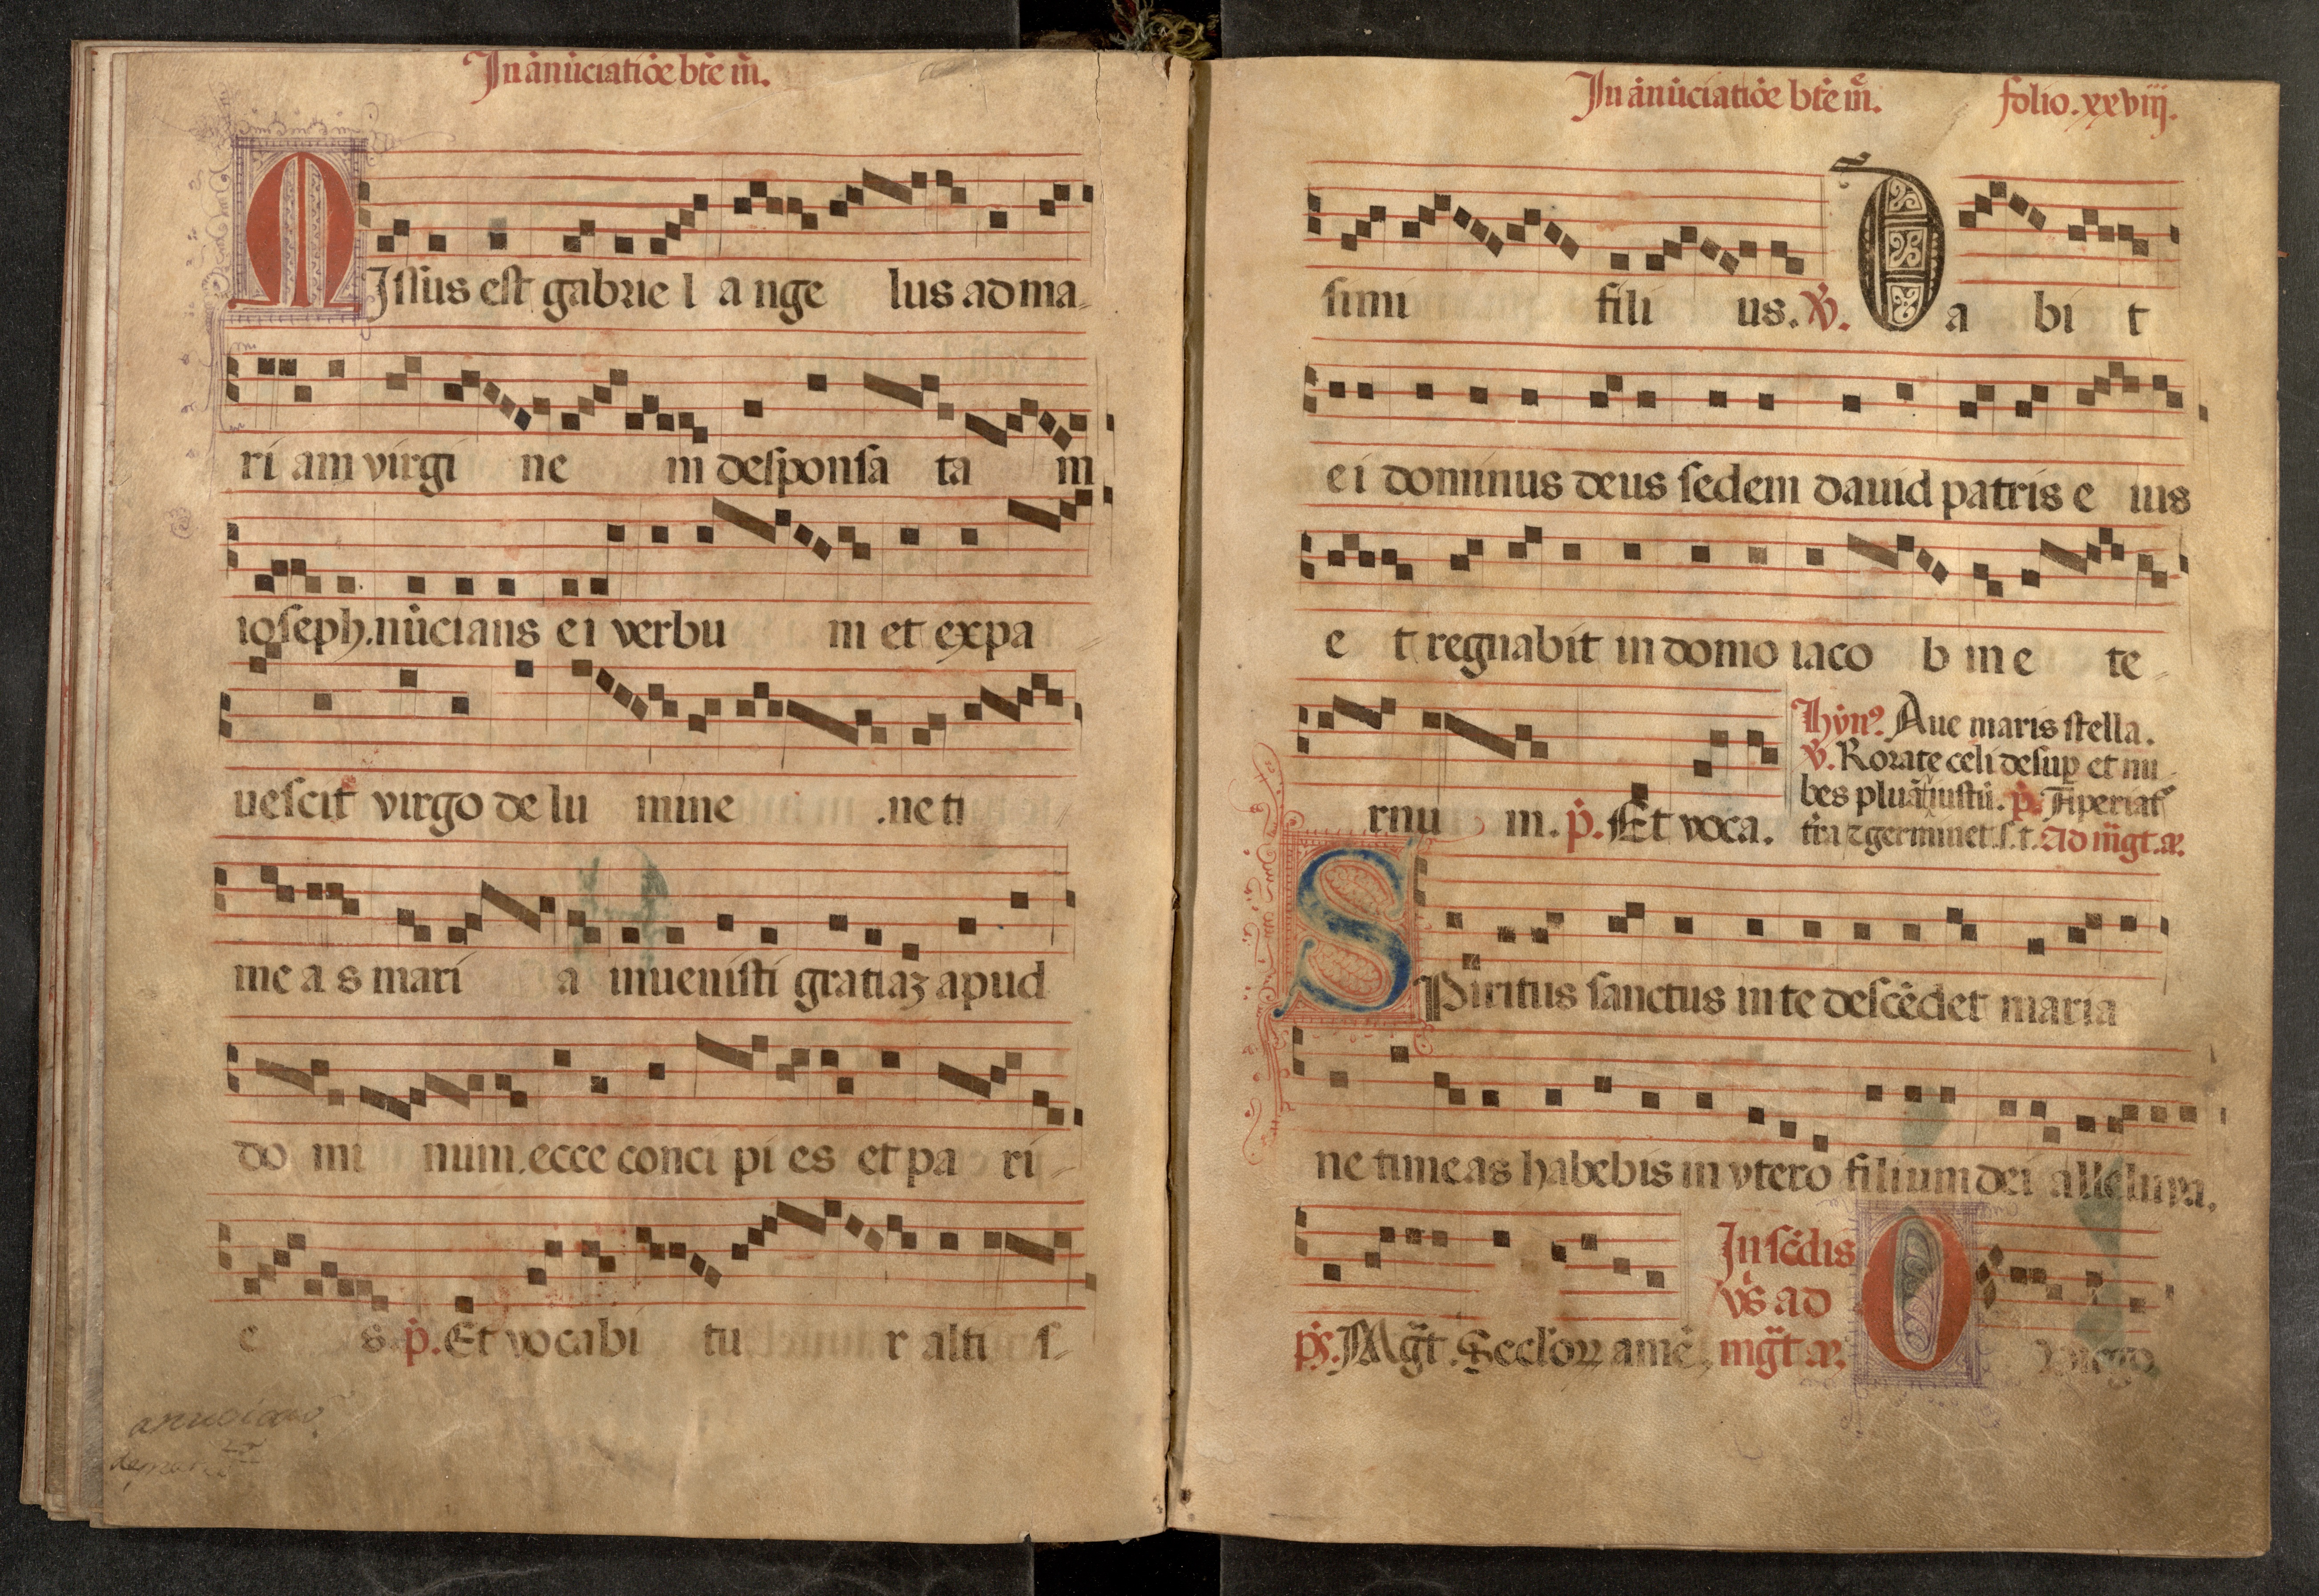 In ānūciatiōe btē m̄.
MIssus est gabrie l a nge lus ad ma-
ri am virgi ne m desponsa ta m
ioseph. nūcians ei verbu m et expa-
uescit virgo de lu mine . ne ti-
me a s mari a inuenisti gratiaꝫ apud
do mi num. ecce conci pi es et pa ri-
e s. p̄. Et vocabi tu r alti s-
In ānūciatiōe btē m̄. folio. xxviij.
simi fili us. v̄. Da bi t
ei dominus deus sedem dauid patris e ius
e t regnabit in domo iaco b in e te-
rnu m. p̄. Et voca.
hyn⁹. Aue maris stella.
v̄. Rorate celi desuꝑ et nu-
bes pluāt iustū. p̄. Aperiat̄
tr̄a ⁊ germinet. s. t. Ad m̄gt. añ.
SPiritus sanctus in te descēdet maria
ne timeas habebis in vtero filium dei alleluya.
ps. Mḡt. Secloꝝ amē.
In scd̄is
vs̄ ad
mḡt añ.
O